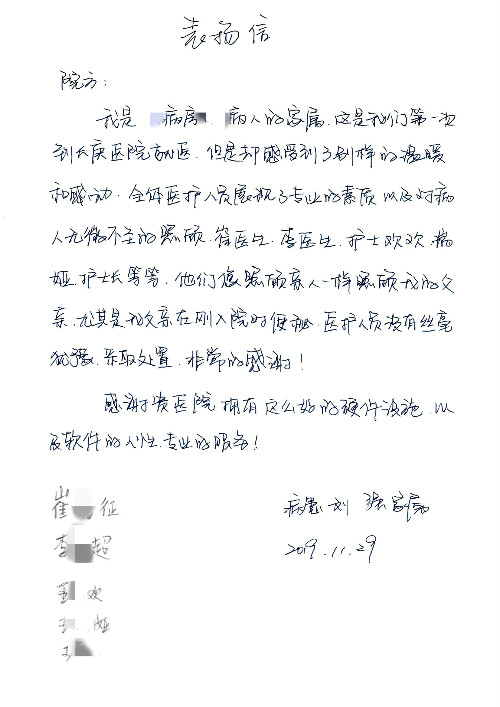 表扬信
院方：
我是 病房 病人的家属，这是我们第一次
到长庚医院就医，但是却感受到了别样的温暖
和感动，全体医护人员展现了专业的素质以及对病
人无微不至的照顾，崔医生、李医生、护士欢欢、
娅、护士长等等，他们像照顾亲人一样照顾我的父
亲，尤其是我父亲在刚入院时便秘，医护人员没有丝毫
犹豫，采取处置，非常的感谢！
感谢贵医院拥有这么好的硬件设施，以
及软件的人性、专业的服务！
崔 征
李 超
欢
娅
病患 刘 家属
2019.11.29